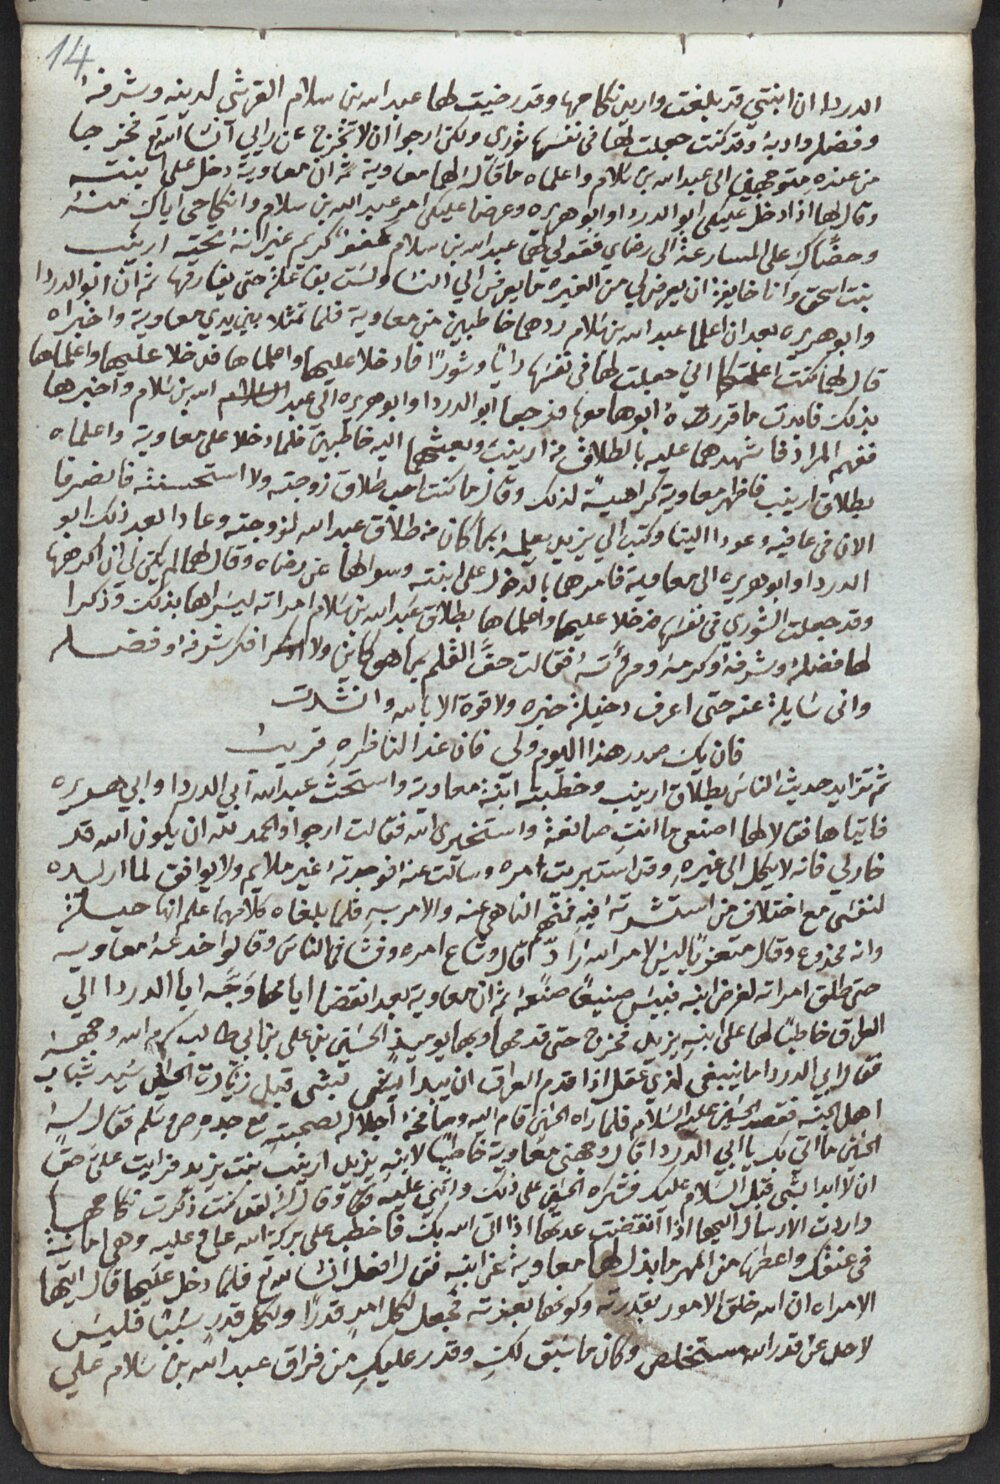 14
الدردا ان ابنتي قد بلغت واريد نكاحها وقد رضيت لها عبد الله بن سلام القرشي لدينه وشرفه
وفضله وادبه وقد كنت جعلت لها في نفسها شوري ولكن ارجوا ان لا تخرج عن رايي ان شا الله تع فخرجا
من عنده متوجهين الى عبد الله بن سلام واعلماه ما قاله لهما معاوية ثم ان معاوية دخل على ابنته
وقال لها اذا دخل عليكي ابو الدردا وابو هريره وعرضا عليكي امر عبد الله بن سلام وانكاحي اياك منه
وحضاك على المسارعة الى رضاي فقولي لهما عبد الله بن سلام كفو كريم غير انه تحته ارينب
بنت اسحق وانا خايفة ان يعرض لي من الغيره ما يعرض الي النسا ولست بفاعلة حتى يفارقها ثم ان ابو الدردا
وابو هريره بعد ان اعلما عبد الله بن سلام ردهما خاطبين من معاوية فلما تمثلا بين يدي معاوية واخبراه
قال لهما كنت اعلمتكما اني جعلت لها في نفسها رايا وشورا فادخلا عليها واعلماها فدخلا عليها واعلماها
بذلك فابدت ما قرره ابوها معها فخرجا ابو الدردا وابو هريره الى عبد الله بن سلام واخبرها
ففهم المراد فاشهدهما عليه بالطلاق من ارينب وبعثهما اليه خاطبين فلما دخلا على معاوية واعلماه
بطلاق ارينب فاظهر معاوية كراهية لذلك وقال ما كنت احب طلاق زوجته ولا استحسنته فانصرفا
الان في عافيه وعودا الينا وكتب الي يزيد يعلمه بما كان من طلاق عبد الله لزوجته وعادا بعد ذلك ابو
الدردا وابو هريره الى معاوية فامرهما بالدخول على ابنته وسوالها عن رضاه وقال لهما لم يكن لي ان اكرهها
وقد جعلت الشوري في نفسها فدخلا عليها واعلماها بطلاق عبد الله بن سلام امراته ليسراها بذلك وذكرا
لها فضله وشرفه وكرمه ومرأته فقالت جف القلم بما هو كاين ولا انكر شرفه وفضله
واني سايلة عنه حتى اعرف دخيلة خبره ولا قوة الا بالله وانشدت
فان يك صدر هذا اليوم ولى فان غدا لناظره قريب
ثم تزايد حديث الناس بطلاق ارينب وخطبته ابنة معاوية واستحث عبد الله ابي الدردا وابي هريره
فاتياها فقالا لها اصنعي ما انت صانعة واستخيري الله فقالت ارجوا والحمد لله ان يكون الله قد
خار لي فانه لا يكل الى غيره وقد استبريت امره وسالت عنه فوجدته غير ملايم ولا يوافق لما اريده
لنفسي مع اختلاف من استشرته فيه فمنهم الناهي عنه والامر به فلما بلغاه كلامها علم انها حيلة
وانه مخدوع وقال متعزيا ليس لامر الله راد قال وشاع امره وفشا في الناس وقالوا خدعه معاويه
حتى طلق امراته لغرض ابنه فبئس صنيعا صنعه ثم ان معاوية بعد انقضا ايامها وجه ابا الدردا الي
العراق خاطبا لها على ابنه يزيد فخرج حتى قدمها وبها يوميذ الحسين بن علي بن ابي طالب كرم الله وجهه
فقال ابي الدردا ما ينبغي لذي عقل اذا قدم العراق ان يبدا بشي قبل زيارة الحسين سيد شباب
اهل الجنه فقصد الحسين عليه السلام فلما راه الحسين قام اليه وصافحه اجلالا لصحبته مع جده ص وسلم فقال له
الحسين ما اتى بك يا ابي الدردا قال وجهني معاوية خاطبا لابنه يزيد ارينب بنت يزيد فرايت علي حقا
ان لا ابدا بشي قبل السلام عليك فشكره الحسين على ذلك واثنى عليه وقال له لقد كنت ذكرت نكاحها
واردت الارسال اليها اذا انقضت عدتها اذا اتى الله بك فاخطب على بركة الله علي وعليه وهي امانة
في عنقك واعطها من المهر ما بذل لها معاوية عن ابنه فقال افعل ان شا الله تع فلما دخل عليها قال ايتها
الامراه ان الله خلق الامور بقدرته وكونها بعزته فجعل لكل امر قدرا ولكل قدر سببا فليس
لاحد عن قدر الله مستخلص وكان ما سبق لك وقدر عليك من فراق عبد الله بن سلام علي